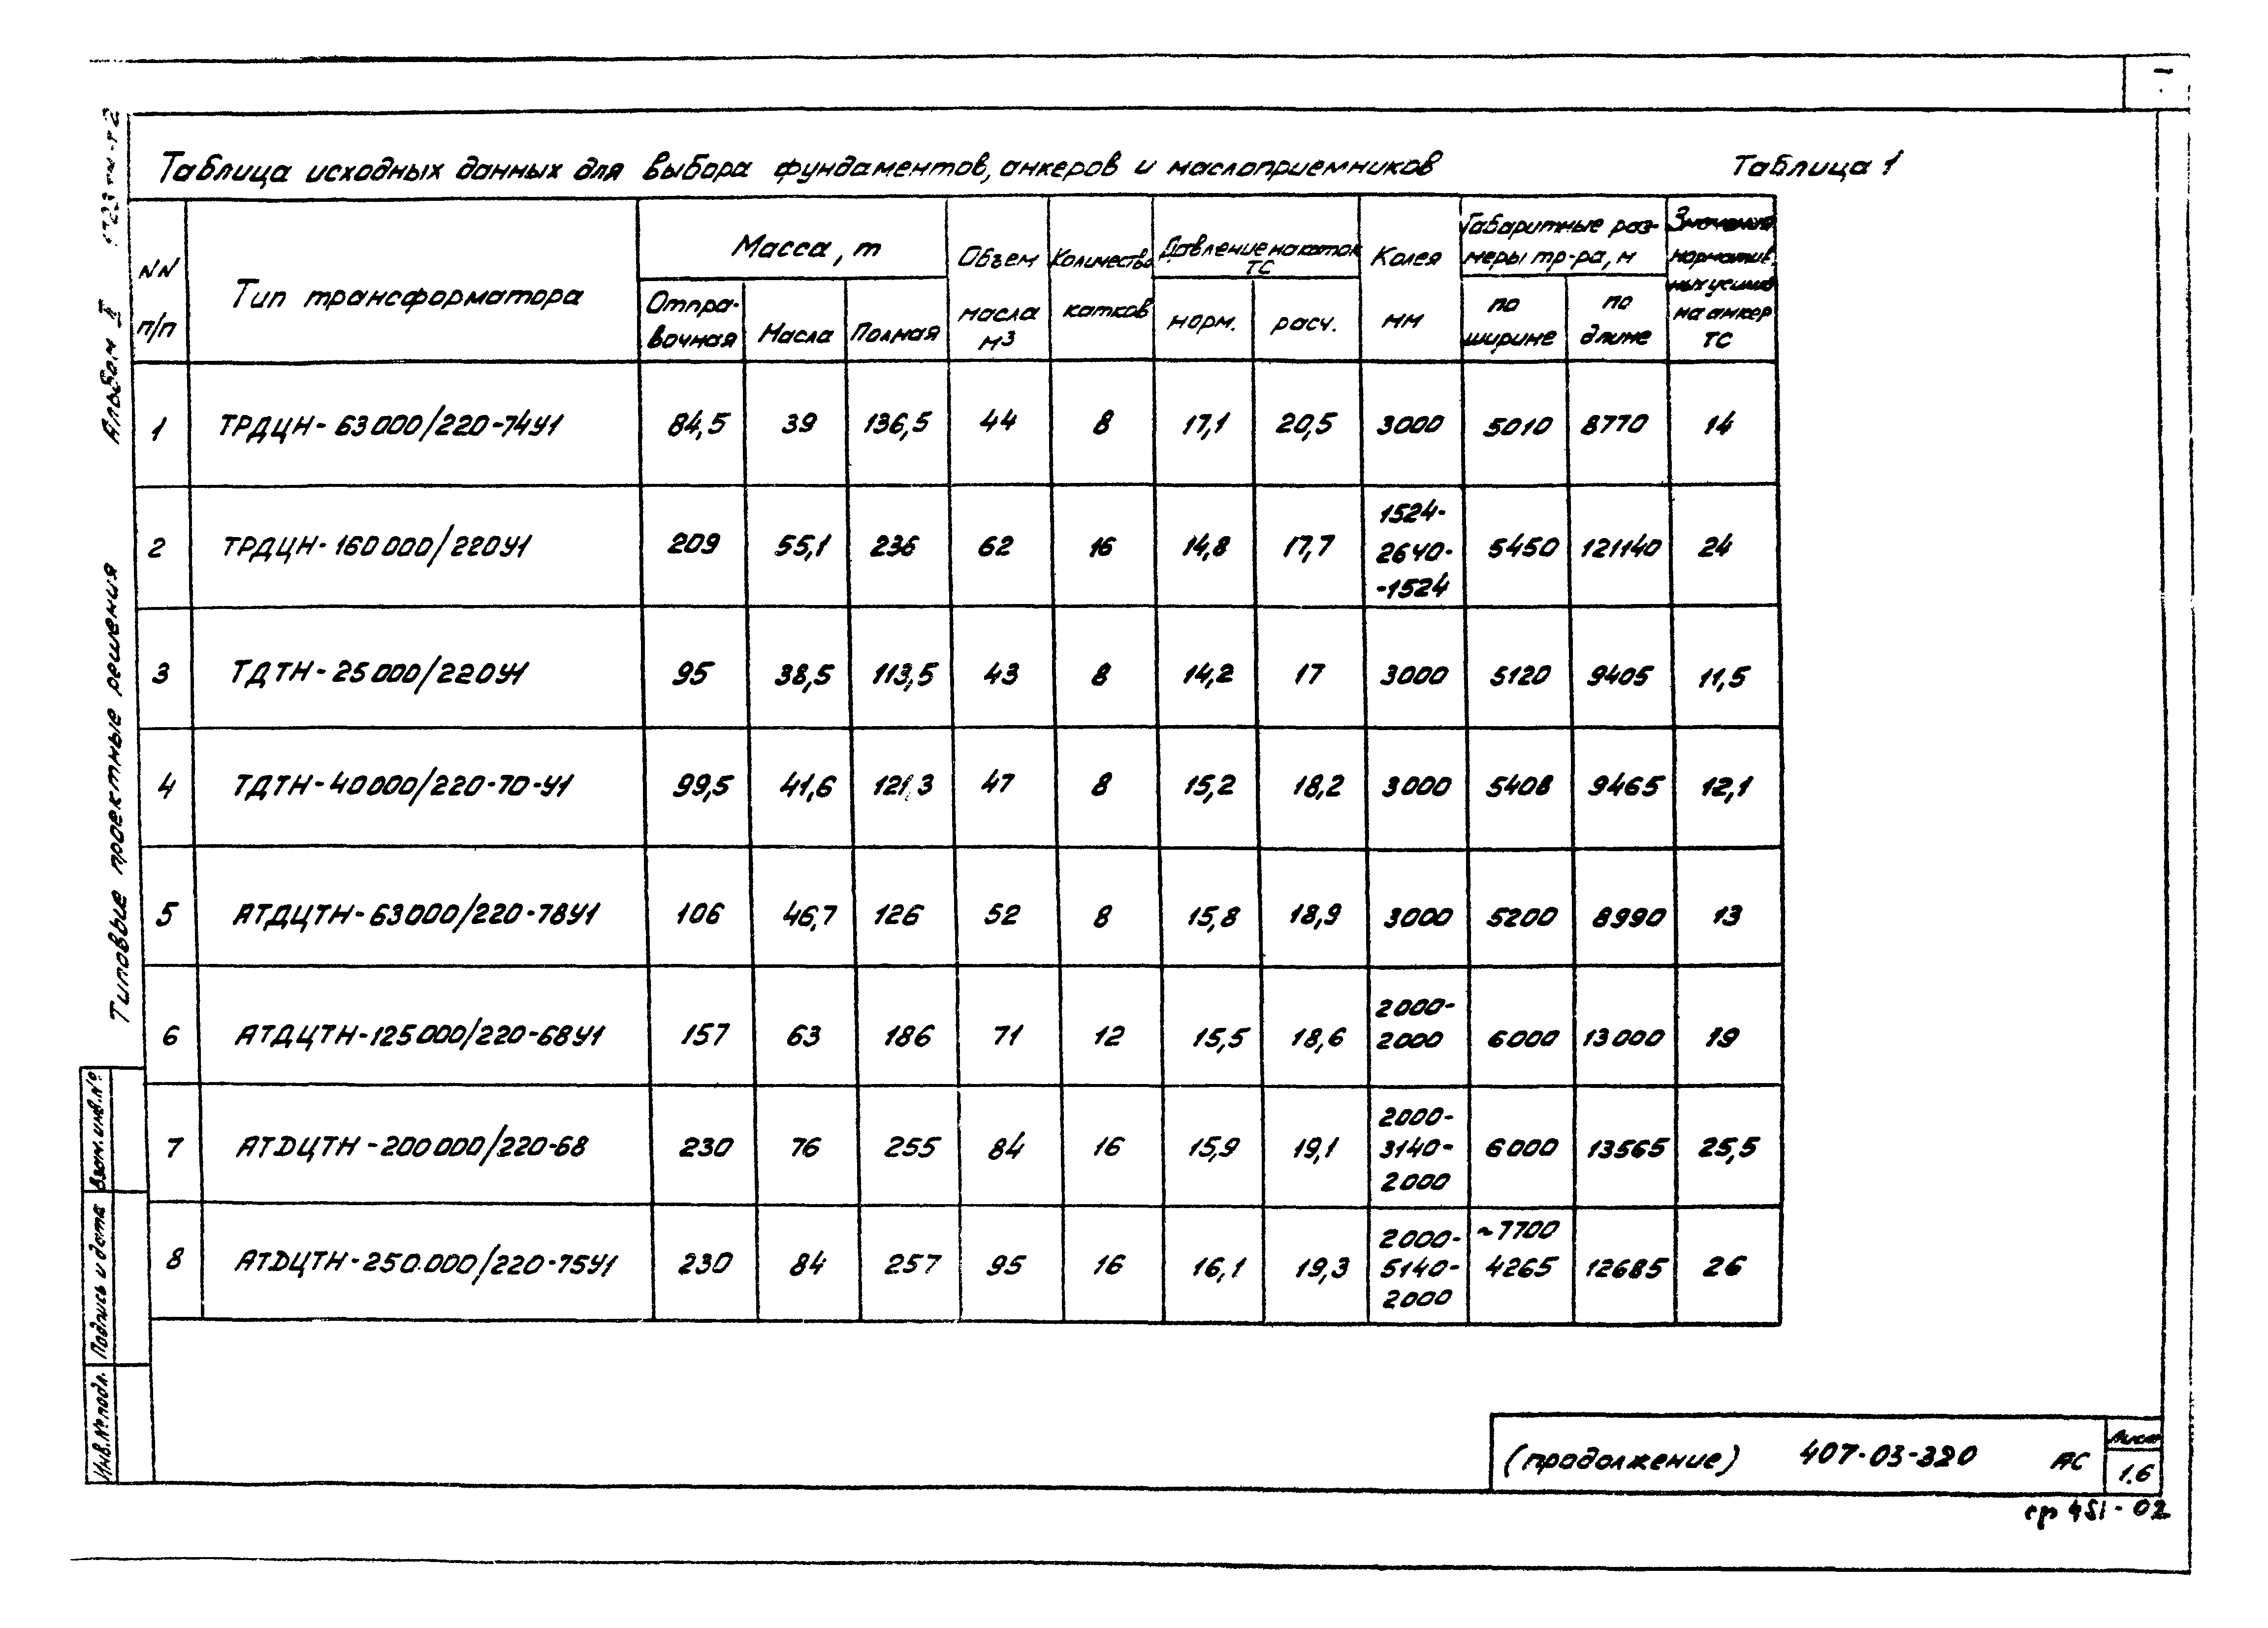 Таблица исходных данных для выбора фундаментов, анкеров и маслоприемников Таблица 1
NN п/п Тип трансформатора Масса, т Объем масла м³ Количество катков Давление на каток тс Колея мм Габаритные размеры тр-ра, м Значения нормативных усилий на анкер тс
Отправочная Масла Полная норм. расч. по ширине по длине
1 ТРДЦН-63000/220-74У1 84,5 39 136,5 44 8 17,1 20,5 3000 5010 8770 14
2 ТРДЦН-160000/220У1 209 55,1 236 62 16 14,8 17,7 1524-2640-1524 5450 121140 24
3 ТДТН-25000/220У1 95 38,5 113,5 43 8 14,2 17 3000 5120 9405 11,5
4 ТДТН-40000/220-70-У1 99,5 41,6 121,3 47 8 15,2 18,2 3000 5408 9465 12,1
5 АТДЦТН-63000/220-78У1 106 46,7 126 52 8 15,8 18,9 3000 5200 8990 13
6 АТДЦТН-125000/220-68У1 157 63 186 71 12 15,5 18,6 2000-2000 6000 13000 19
7 АТДЦТН-200000/220-68 230 76 255 84 16 15,9 19,1 2000-3140-2000 6000 13565 25,5
8 АТДЦТН-250.000/220-75У1 230 84 257 95 16 16,1 19,3 2000-5140-2000 ~7700 4265 12685 26
Типовые проектные решения Альбом II
Взам. инв. №
Подпись и дата
Инв. № подл.
(продолжение) 407-03-320 АС
Лист
1.6
ср 451-02